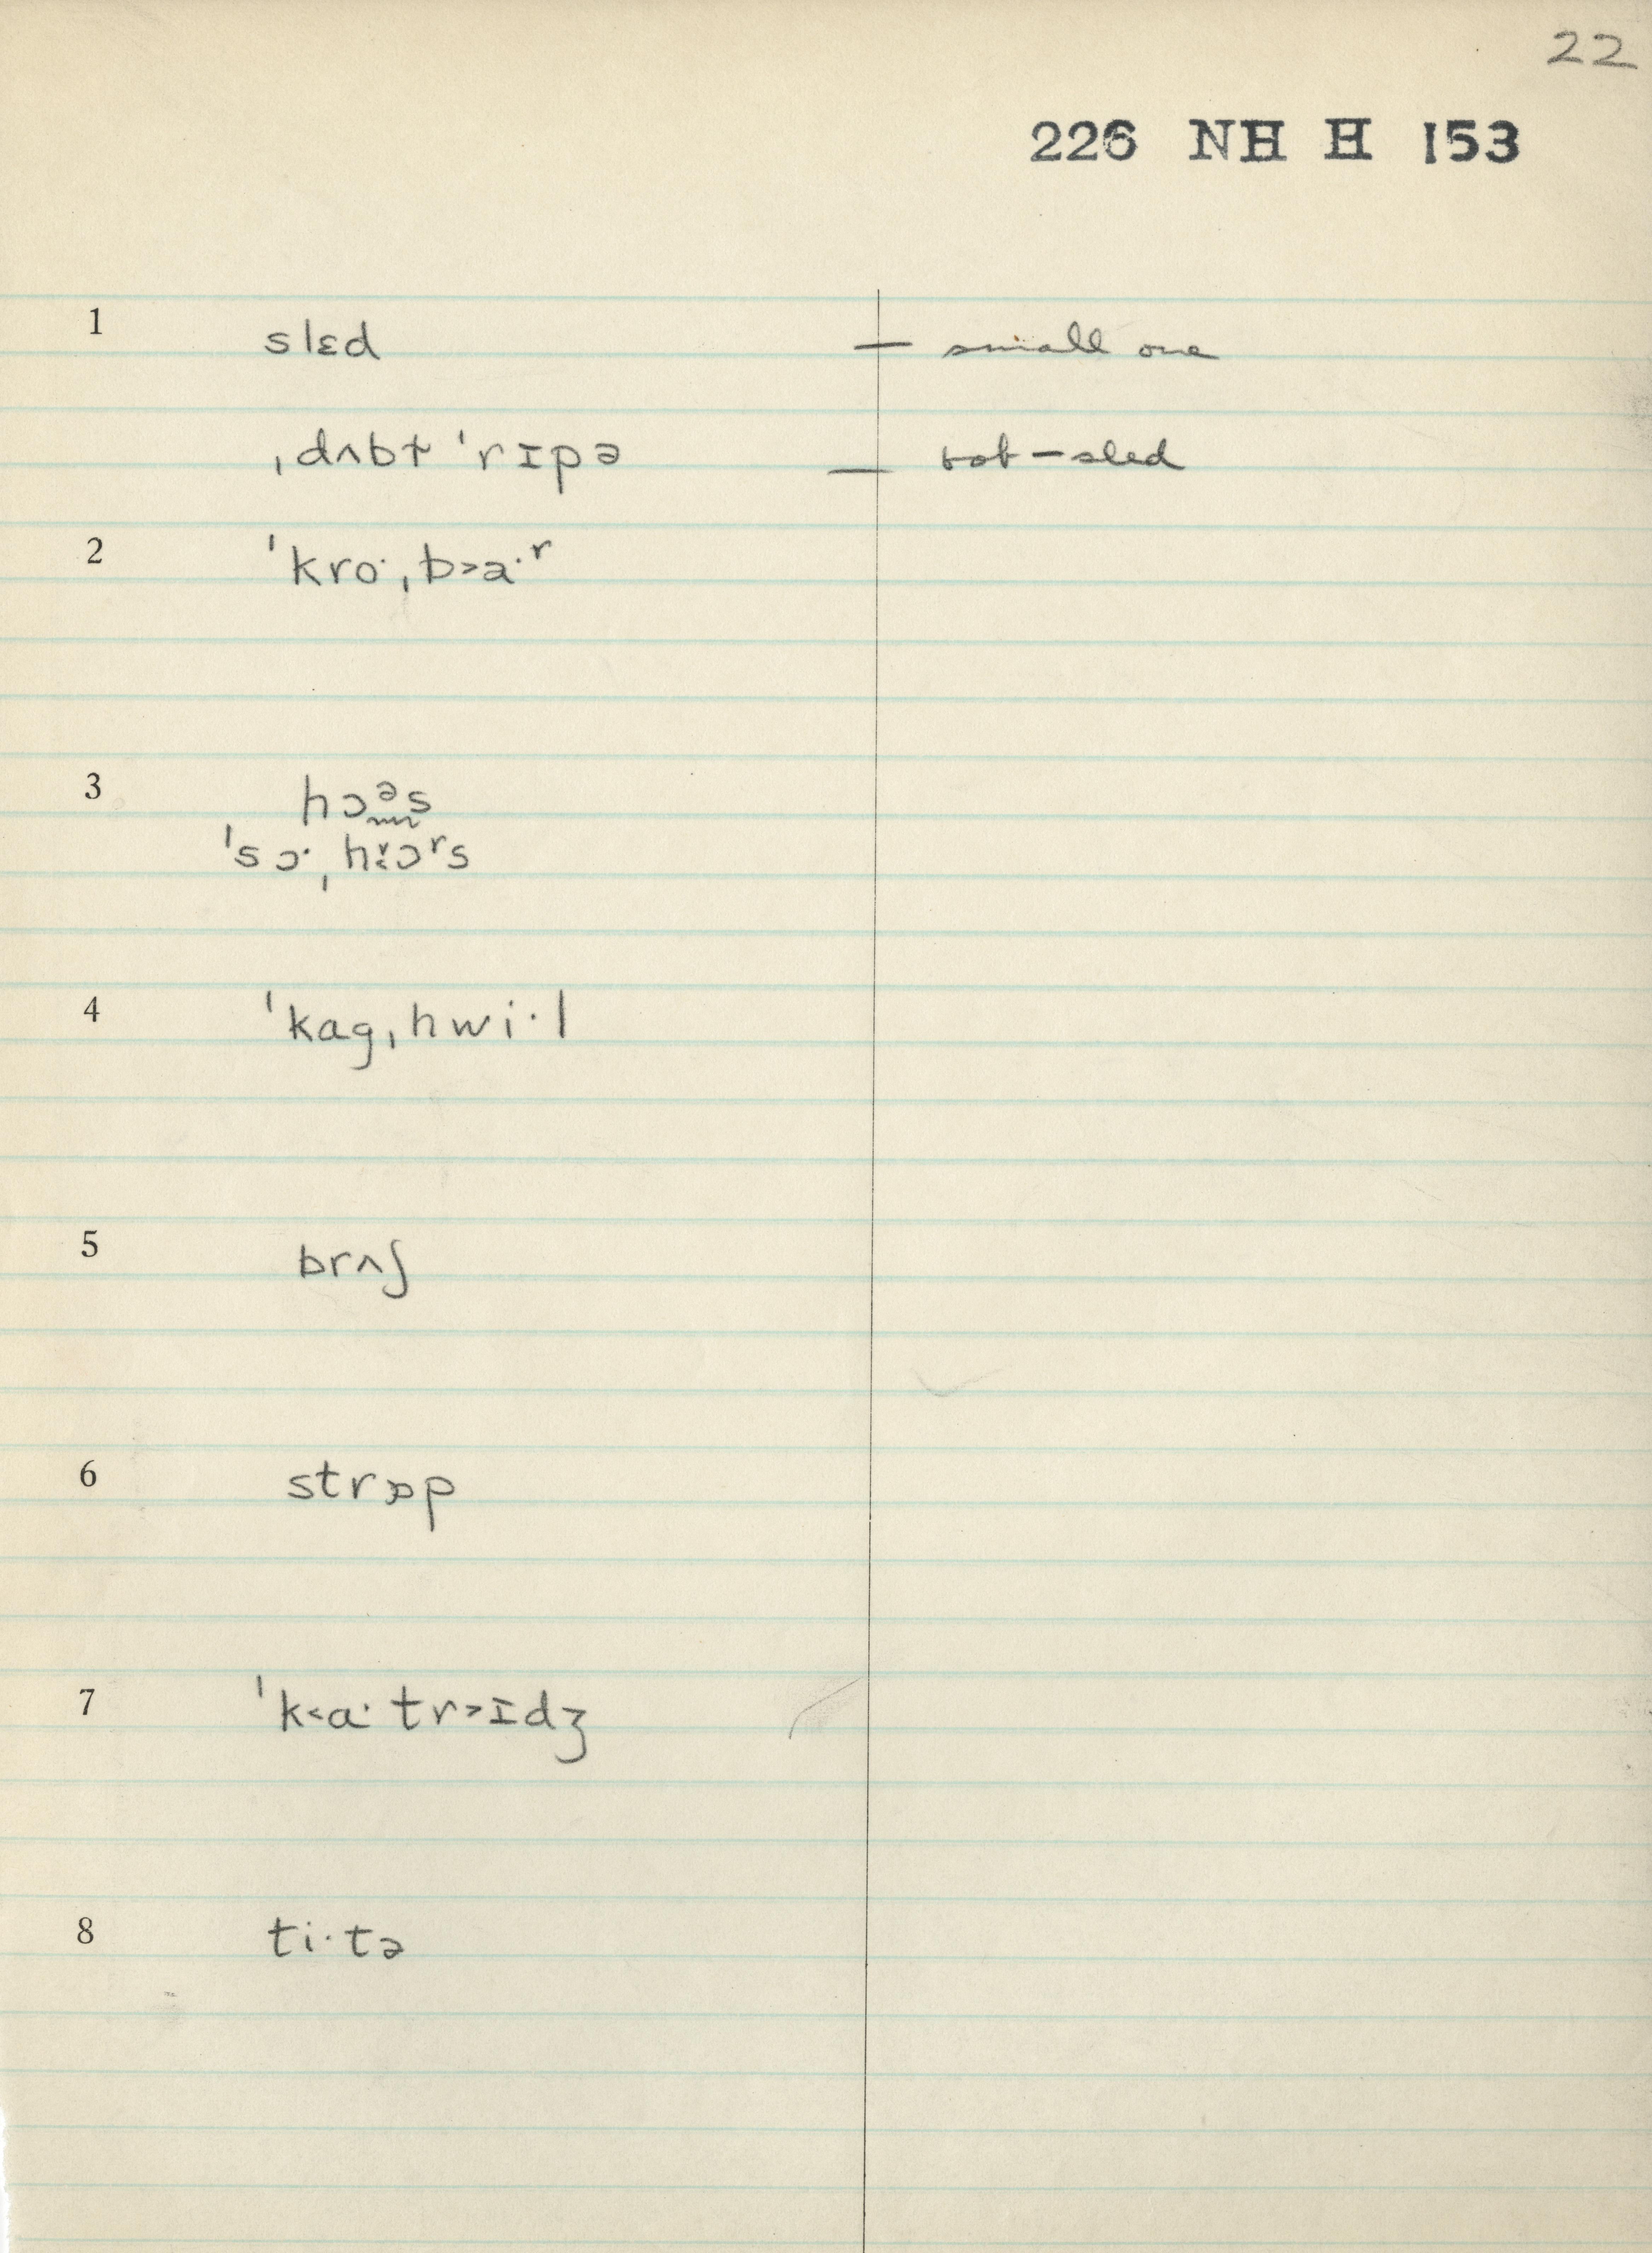 22
226 NH H 153
1 slɛd — small one
ˌdʌbɫ ˈrɪpə — bob-sled
2 ˈkroˑˌb˃aˑʳ
3 hɔᵊs
ˈsɔˑˌhɔʳs
4 ˈkagˌhwiˑl
5 brʌʃ
6 strɒp
7 ˈk˂aˑtr˃ɪdʒ
8 tiˑtə